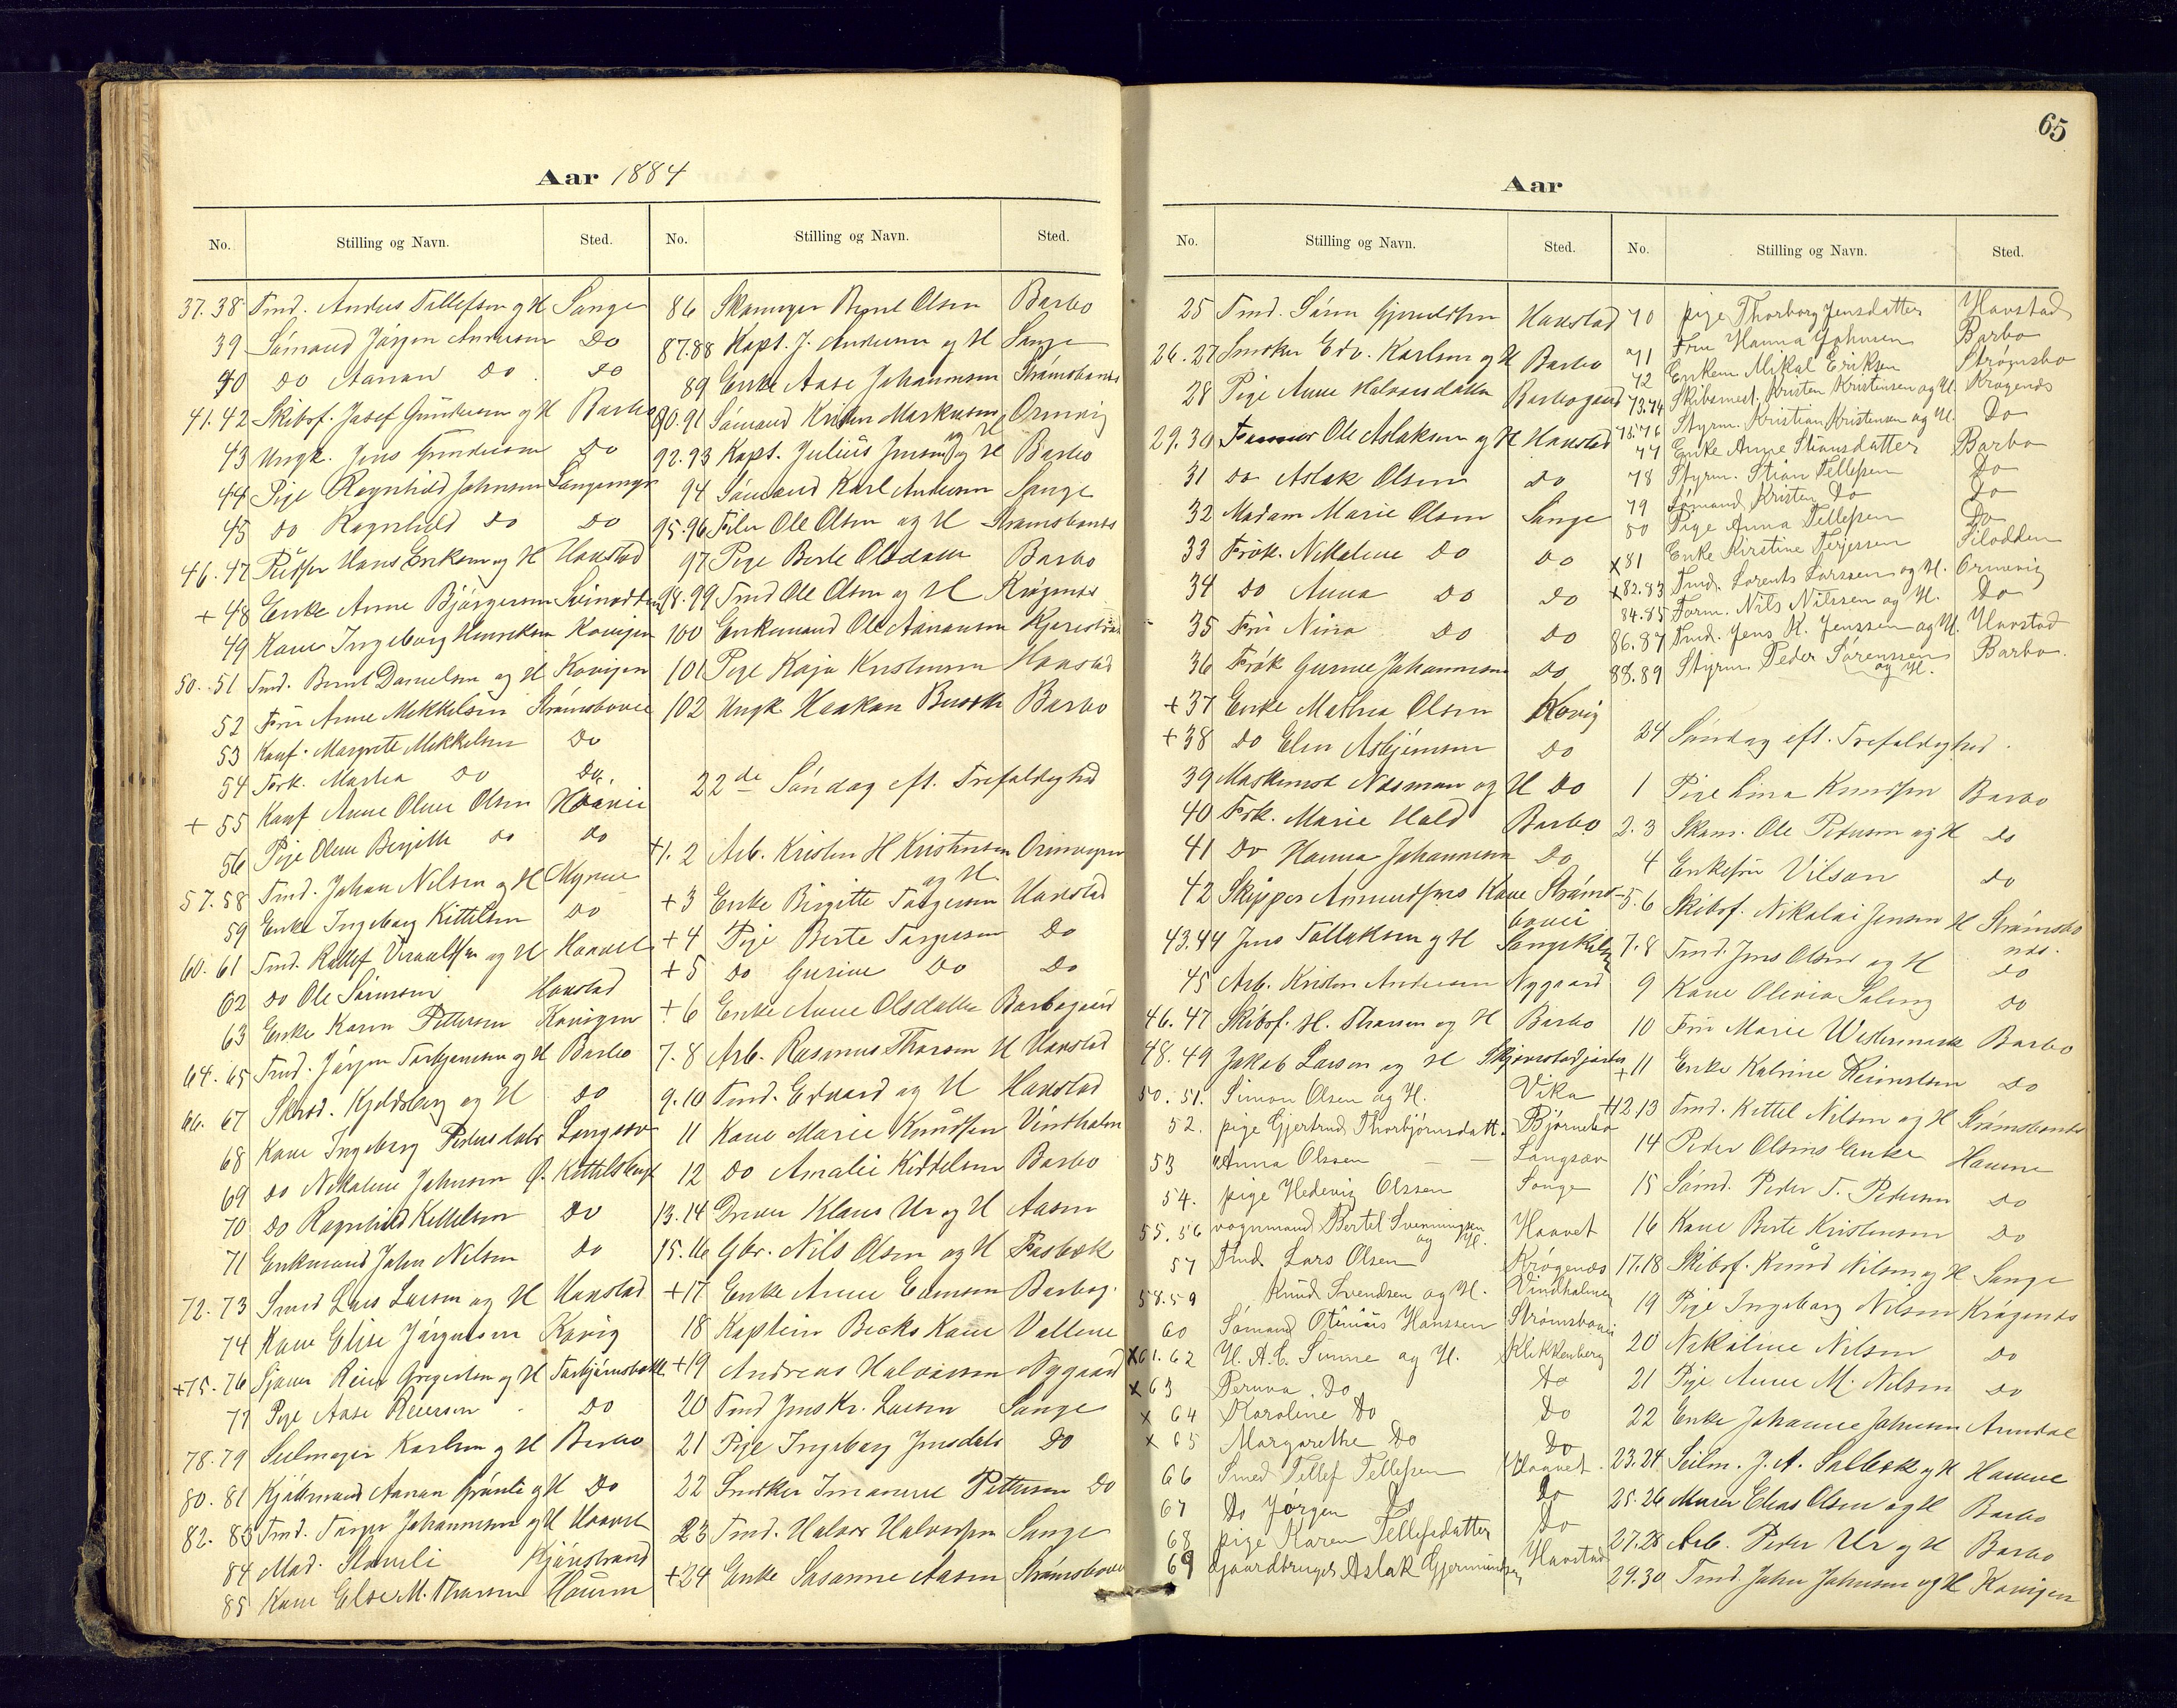 Aar 1884
No. Stilling og Navn. Sted. No. Stilling og Navn. Sted.
37.38 Tmd. Anders Tellefsen og H Songe
39 Sömand Jörgen Andersen Do
40 do Aanan do do
41.42 Skibsf. Josef Gundersen og H Barbo
43 Ungk. Jens Gundersen Do
44 Pige Ragnhild Johnsen Langemyr
45 do Ragnhild do do
46.47 Hans Eriksen og H Havstad
+ 48 Enke Anne Björgersen
49 Kone Ingeborg Henriksen Kovigen
50.51 Tmd. Bernt Danielsen og H Kovigen
52 Fru Anne Mikkelsen Strömsbovei
53 Konf. Margrete Mikkelsen Do
54 Frk. Marha do Do.
+ 55 Konf Anne Oline Olsen
56 Pige Oline Birgitte do do
57.58 Tmd. Johan Nilsen og H Myrene
59 Enke Ingeborg Kittelsen Do
60.61 Tmd. Rellef og H Haavet
62 do Ole Havstad
63 Enke Karen Pettersen Kovigen
64.65 Tmd. Jörgen Torbjörnsen og H Barbo
66.67 Kjeldsberg og H do
68 Kone Ingeborg Pedersdatr Langsæv
69 do Nikoline Johnsen Ø. Kittelsbugt
70 Do Ragnhild Kittelsen Do
71 Enkmand John Nilsen Do
72.73 Smed Lars Larsen og H Havstad
74 Kone Elise Jörgensen Kovig
+75.76 Reier Gregersen og H Torbjörnsbakke
77 Pige Aase Reiersen Do
78.79 Seilmager Karlsen og H Barbo
80.81 Kjöbmand Aanan Grönli og H Do
82.83 Tmd. Torger Johannesen og H Haavet
84 Mad. Kjönstrand
85 Kone Else M. Thorsen
86 Skomager Bernt Olsen Barbo
87.88 Kapt. J. Andersen og H Songe
89 Enke Aase Johannesen Strömsbonæs
90.91 Sömand Kristen Markusen og H Ormvig
92.93 Kapt. Julius Jensen og H Barbo
94 Sömand Karl Andersen Songe
95.96 Filer Ole Olsen og H Strömsbonæs
97 Pige Berte Olsdatter Barbo
98.99 Tmd Ole Olsen og H Krögenæs
100 Enkemand Ole Aanonsen
101 Pige Kaja Kristensen Havstad
102 Ungk Haakon Barbo
22de Söndag eft. Trefoldighed
+1.2 Arb. Kristen H Kristensen og H. Ormvigen
+3 Enke Birgitte Torgersen Havstad
+4 Pige Berte Torgersen Do
+5 do Gusine Do Do
+6 Enke Anne Olsdatter Barbogaard
7.8 Arb. Rasmus Thorsen H Havstad
9.10 Tmd. Edvard og H Havstad
11 Kone Marie Knudsen Vindholmen
12 do Amalie Kittelsen Barbo
13.14 Klaus Ur og H Aasen
15.16 Gbr. Nils Olsen og H Fasbæk
+17 Enke Anne Barbog.
18 Kaptein Becks Kone Vollene
+19 Andreas Halvorsen Nygaard
20 Tmd Jens Kr. Larsen Songe
21 Pige Ingeborg Jensdatr Do
22 Snedker Imanuel Pettersen Do
23 Tmd. Halvor Halvorsen Songe
+24 Enke Susanne Aasen Strömsbovei
65
Aar
No. Stilling og Navn. Sted. No. Stilling og Navn. Sted.
25 Tmd. Sören Gjerulfsen Havstad
26.27 Snedker Edv. Karlsen og H Barbo
28 Pige Anne Halvorsdatter Barbogaard
29.30 Farmer Ole Aslaksen og H Havstad
31 do Aslak Olsen do
32 Madam Marie Olsen Songe
33 Frök. Nikoline Do do
34 do Anna do do
35 Fru Nina do do
36 Frök Gusine Johannesen Do
+37 Enke Mathea Olsen Kovig
+38 do Elen Asbjörnsen do
39 Maskinist Næsman og H Do
40 Frk. Marie Hald Barbo
41 Do Hanna Johannesen Do
42 Skipper Amundsens Kone Strömsbovei
43.44 Jens Tallaksen og H
45 Arb. Kristen Andersen Nygaard
46.47 Skibsf. H. Thorsen og H Barbo
48.49 Jakob Larsen og H
50.51. Simon Olsen og H. Vika
52. pige Gjertrud Thorbjörnsdatt. Björnebo
53 "Anna Olssen — — Langsæv
54. pige Hedevig Olssen Songe
55.56 vognmand Bertel Svenningsen og H. Haavet
57 Tmd. Lars Olsen Krögenæs
58.59 Knud Svendsen og H. Vindholmen
60 Sömand Otinius Hanssen Strömsbovei
x61.62 H. A. C. Sunne og H. Klikkenberg
x 63 Peruva. Do Do
x 64 Karoline Do Do
x 65 Margarethe Do Do
66 Smed Tellef Tellefsen Haavet
67 Do Jörgen Do Do
68 pige Karen Tellefsdatter Do
69 Gjaardbruger Aslak Gjermundsen Havstad
70 pige Thorborg Jensdatter Havstad
71 Fru Hanna Johnsen Barbo
72 Enkem Mikal Eriksen Strömsbo
73.74 Skibsmed. Kristen Kristensen og H. Krogenæs
75.76 Styrm. Kristian Kristensen og H. Do
77 Enke Anne Stiansdatter Barbo
78 Styrm. Stian Tellefsen Do
79 Sömand Kristen Do Do
80 Pige Anna Tellefsen Do
x81 Enke Kirstine Terjessen Filodden
x82.83 Tmd. Lorents Larssen og H. Ormevig
84.85 Form. Nils Nilssen og H. Do
86.87 Tmd. Jens K. Jenssen og H. Havstad
88.89 Styrm. Peder Sörenssen og H. Barbo.
24 Söndag eft. Trefoldighed.
1 Pige Lina Knudsen Barbo
2.3 Skom. Ole Petersen og H do
4 Enkefru Vilson do
5.6 Skibsf. Nikolai Jensen H Strömsbonæs.
7.8 Tmd. Jens Olsen og H do
9 Kone Olivia Do
10 Fru Marie Barbo
+11 Enke Katrine do
+12.13 Tmd. Kittel Nilsen og H Strömsbonæs
14 Peder Olsens Enke Havne
15 Sömd. Peder T. Pedersen do
16 Kone Berte Kristensen Do
17.18 Skibsf. Knud Nilsen og H Songe
19 Pige Ingeborg Nilsen Krögenæs
20 Nikoline Nilsen do
21 Pige Anne M. Nilsen do
22 Enke Johanne Johnsen Arendal
23.24 Seilm. J. A. Salbok og H Havne
25.26 Murer Elias Olsen og H Barbo
27.28 Arb. Peder Ur og H Barbo
29.30 Tmd. John Johnsen og H Kovigen